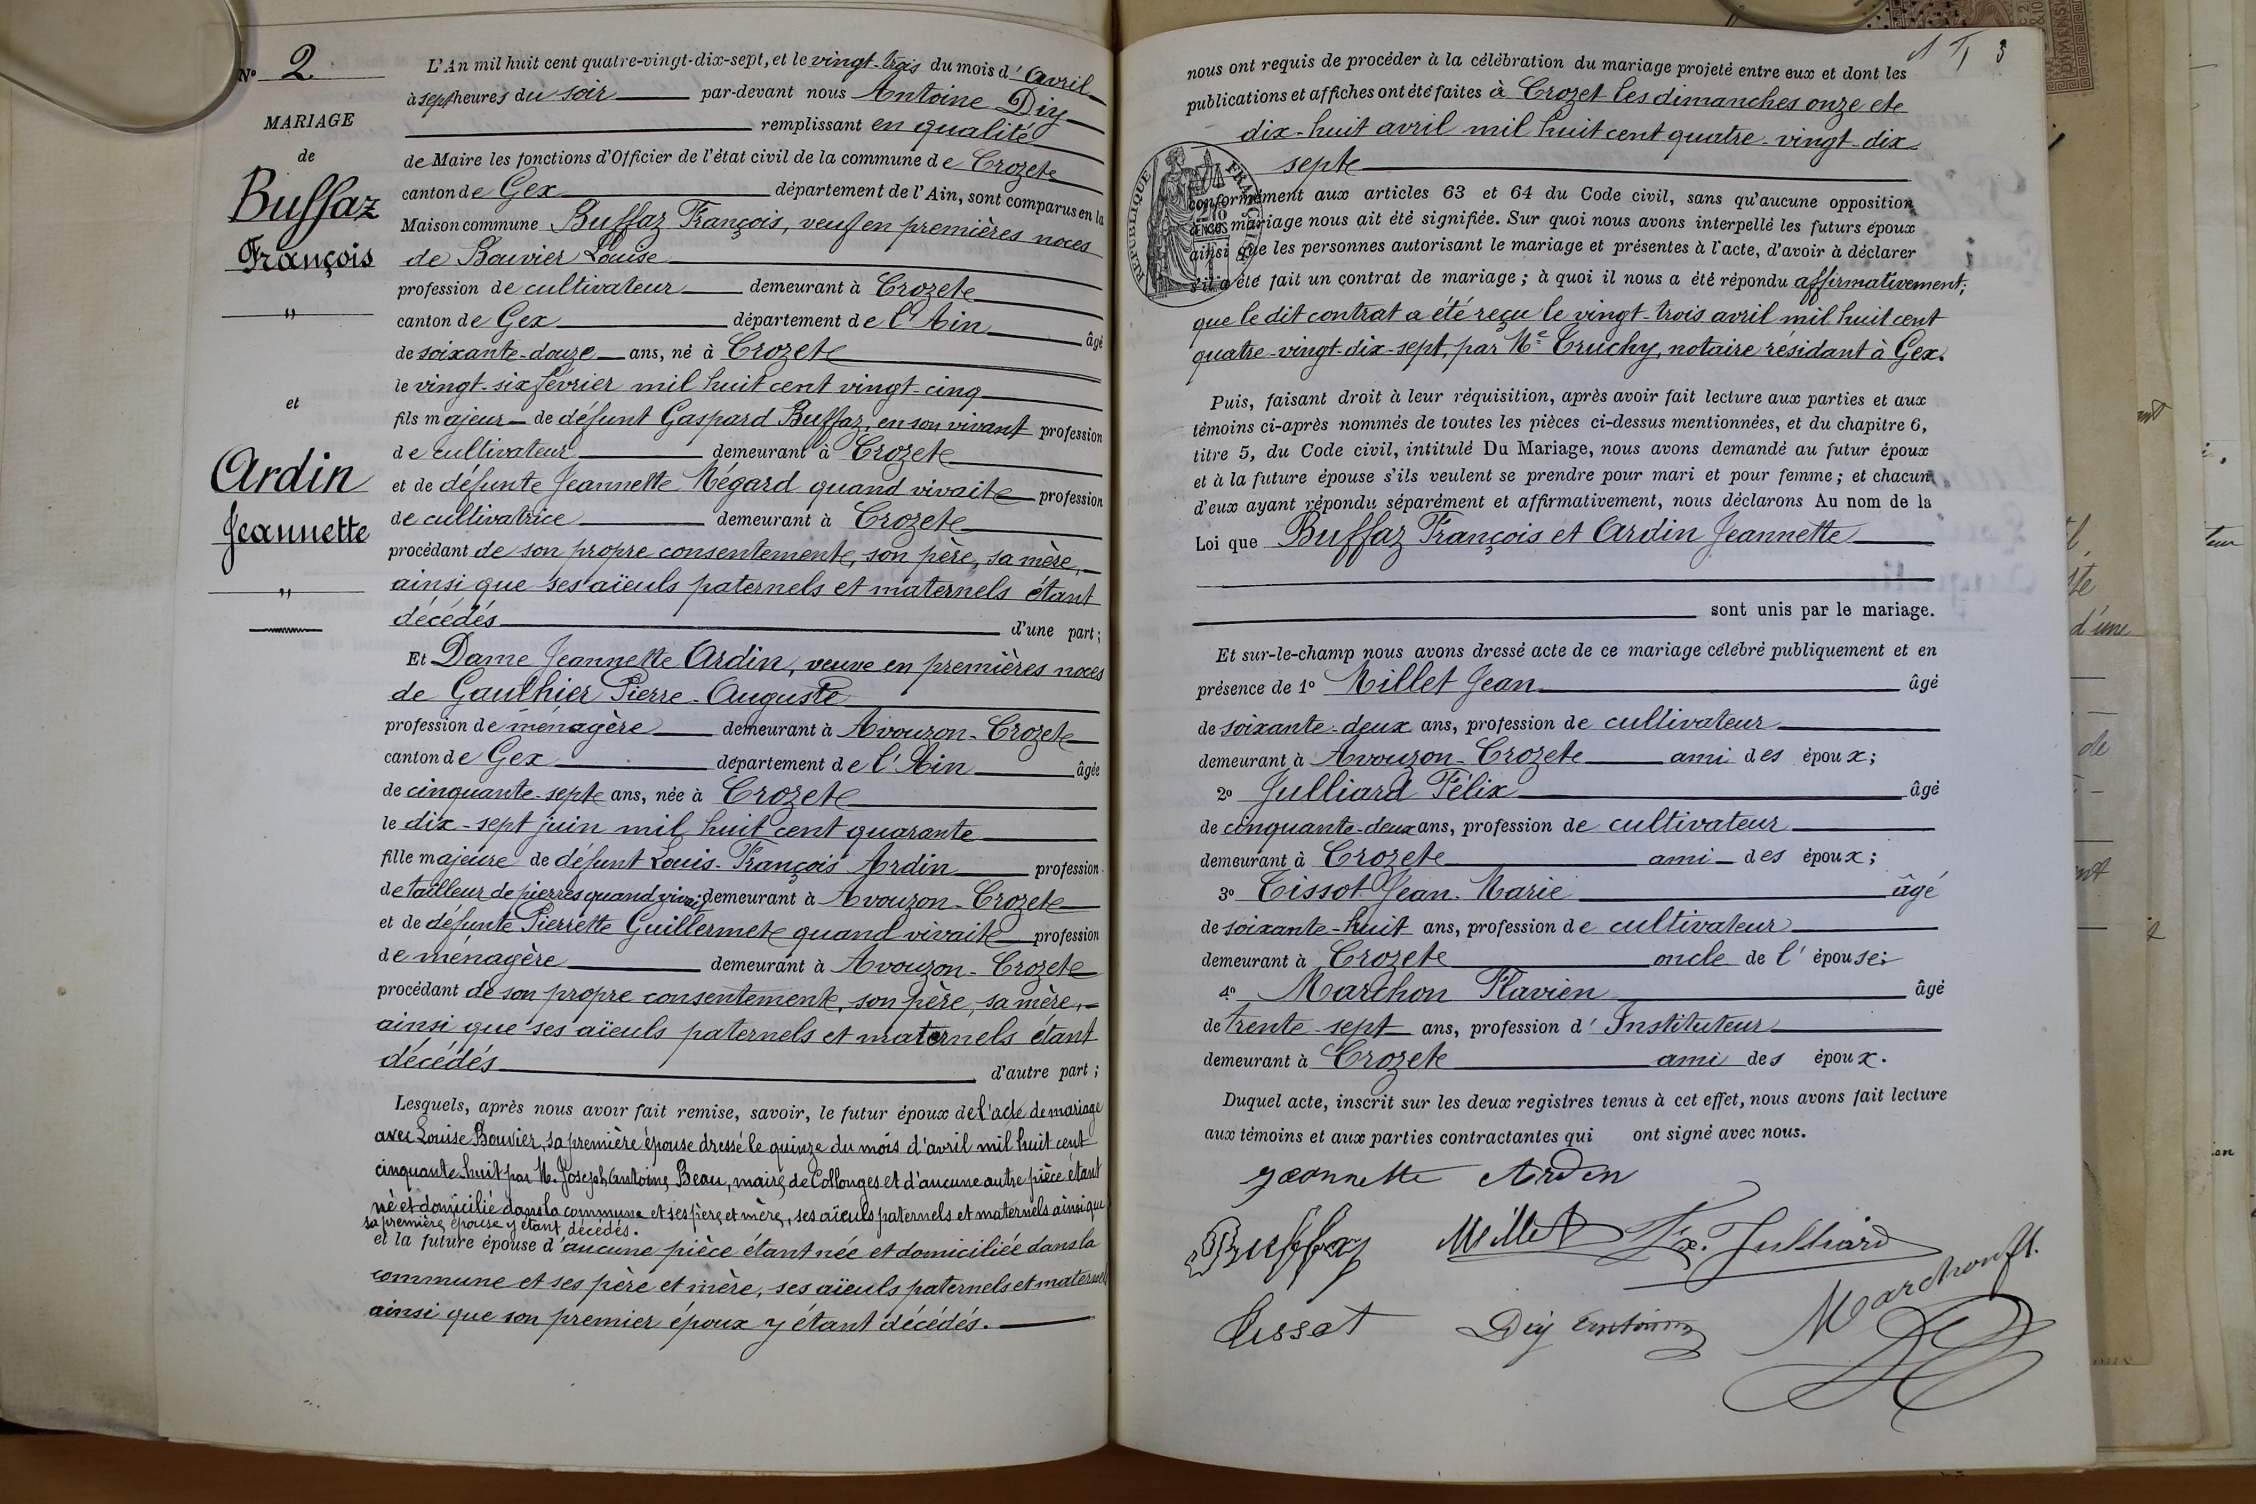 Nº 2
MARIAGE
de
Buffaz
François
"
et
Ardin
Jeannette
"
L'An mil huit cent quatre-vingt-dix-sept, et le vingt-trois du mois d'avril
à sept heures du soir par-devant nous Antoine Diy
remplissant en qualité
de Maire les fonctions d'Officier de l'état civil de la commune de Crozet
canton de Gex département de l'Ain, sont comparus en la
Maison commune Buffaz François, veuf en premières noces
de Bouvier Louise
profession de cultivateur demeurant à Crozet
canton de Gex département de l'Ain âgé
de soixante-douze ans, né à Crozet
le vingt-six février mil huit cent vingt-cinq
fils majeur de défunt Gaspard Buffaz, en son vivant profession
de cultivateur demeurant à Crozet
et de défunte Jeannette Mégard quand vivait profession
de cultivatrice demeurant à Crozet
procédant de son propre consentement, son père, sa mère,
ainsi que ses aïeuls paternels et maternels étant
décédés d'une part;
Et Dame Jeannette Ardin, veuve en premières noces
de Gauthier Pierre-Auguste
profession de ménagère demeurant à Avouzon-Crozet
canton de Gex département de l'Ain âgée
de cinquante-sept ans, née à Crozet
le dix-sept juin mil huit cent quarante
fille majeure de défunt Louis-François Ardin profession
de tailleur de pierres quand vivait demeurant à Avouzon-Crozet
et de défunte Pierrette Guillermet quand vivait profession
de ménagère demeurant à Avouzon-Crozet
procédant de son propre consentement, son père, sa mère,
ainsi que ses aïeuls paternels et maternels étant
décédés d'autre part;
Lesquels, après nous avoir fait remise, savoir, le futur époux de l'acte de mariage
avec Louise Bouvier, sa première épouse dressé le quinze du mois d'avril mil huit cent
cinquante-huit par M. Joseph Antoine Beau, maire de Collonges et d'aucune autre pièce étant
né et domicilié dans la commune et ses père et mère, ses aïeuls paternels et maternels ainsi que
sa première épouse y étant décédés.
et la future épouse d'aucune pièce étant née et domiciliée dans la
commune et ses père et mère, ses aïeuls paternels et maternels
ainsi que son premier époux y étant décédés.
3
nous ont requis de procéder à la célébration du mariage projeté entre eux et dont les
publications et affiches ont été faites à Crozet les dimanches onze et
dix-huit avril mil huit cent quatre-vingt-dix
sept
RÉPUBLIQUE FRANÇAISE
conformément aux articles 63 et 64 du Code civil, sans qu'aucune opposition
à ce mariage nous ait été signifiée. Sur quoi nous avons interpellé les futurs époux
ainsi que les personnes autorisant le mariage et présentes à l'acte, d'avoir à déclarer
s'il a été fait un contrat de mariage; à quoi il nous a été répondu affirmativement;
que le dit contrat a été reçu le vingt-trois avril mil huit cent
quatre-vingt-dix-sept, par Me Truchy, notaire résidant à Gex.
Puis, faisant droit à leur réquisition, après avoir fait lecture aux parties et aux
témoins ci-après nommés de toutes les pièces ci-dessus mentionnées, et du chapitre 6,
titre 5, du Code civil, intitulé Du Mariage, nous avons demandé au futur époux
et à la future épouse s'ils veulent se prendre pour mari et pour femme; et chacun
d'eux ayant répondu séparément et affirmativement, nous déclarons Au nom de la
Loi que Buffaz François et Ardin Jeannette
sont unis par le mariage.
Et sur-le-champ nous avons dressé acte de ce mariage célébré publiquement et en
présence de 1º Millet Jean âgé
de soixante-deux ans, profession de cultivateur
demeurant à Avouzon-Crozet ami des époux;
2º Julliard Félix âgé
de cinquante-deux ans, profession de cultivateur
demeurant à Crozet ami des époux;
3º Tissot Jean-Marie âgé
de soixante-huit ans, profession de cultivateur
demeurant à Crozet oncle de l'épouse;
4º Marchon Flavien âgé
de trente-sept ans, profession d'Instituteur
demeurant à Crozet ami des époux.
Duquel acte, inscrit sur les deux registres tenus à cet effet, nous avons fait lecture
aux témoins et aux parties contractantes qui ont signé avec nous.
Jeannette Ardin
Buffaz Millet Fx. Julliard
Tissot Diy Antoine Marchon fl.